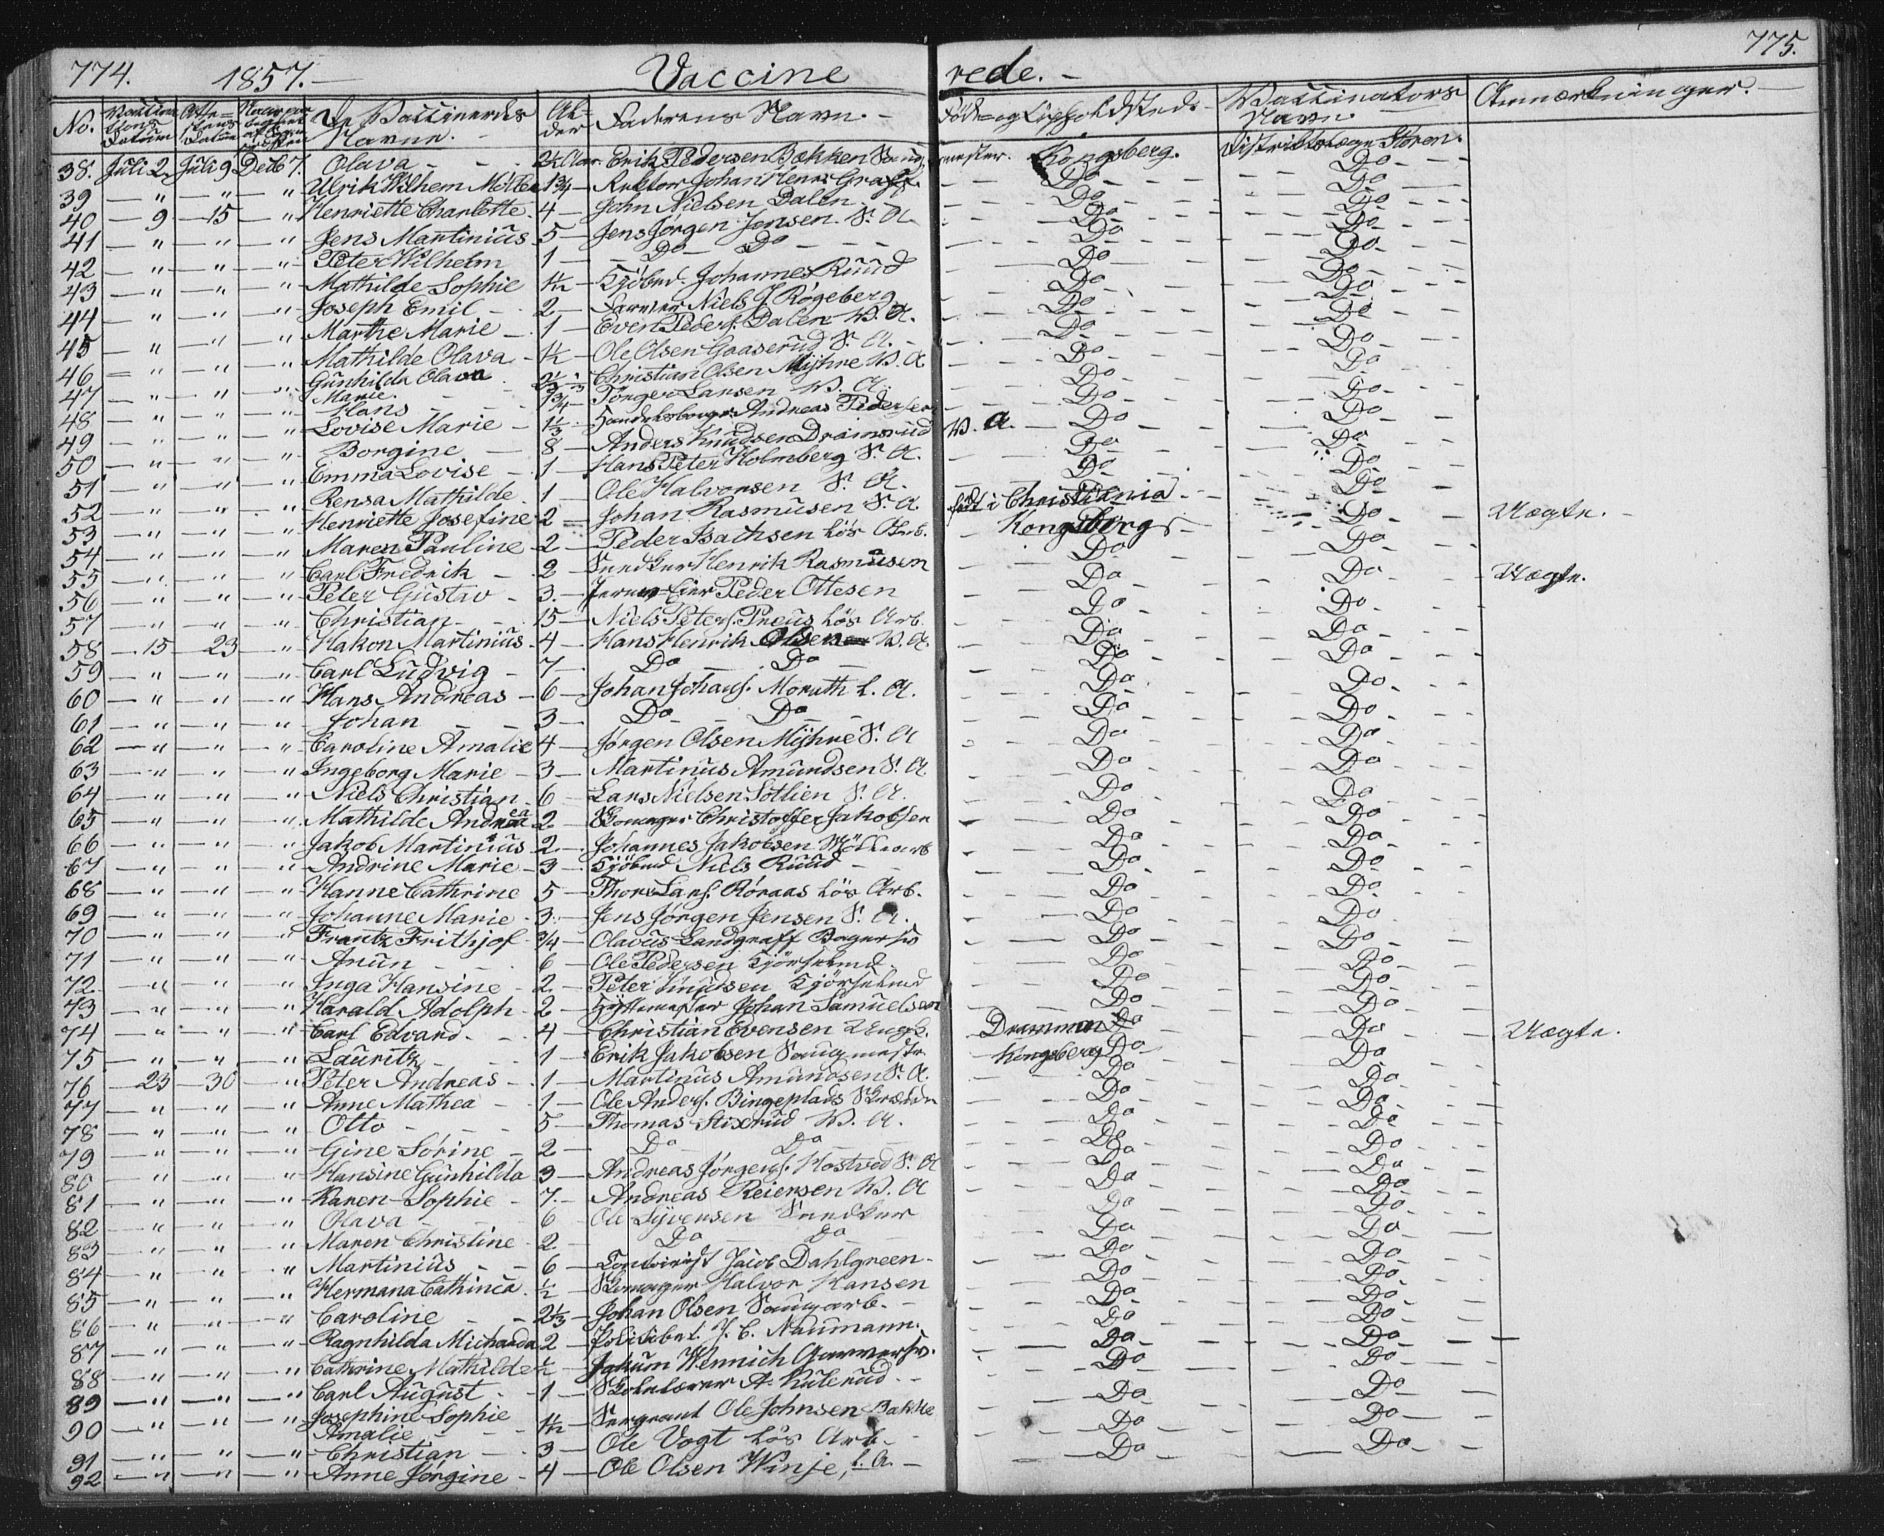 774. 1857. Vaccine rede. 775.
No. Datum Datum De Vaccineredes Navne. Al- der Faderens Navn. Føde- og Opholdsted Vaccinators Navn Anmærkninger.
38. Juli 2. Juli 9 Decb 7. Olava - - 2½ Aar. Erik Pedersen Bakken Kongsberg. Distriktslæge Støren.
39 - " - " - " Ulrik Wilhem Møller 1¾ - Rektor Johan Henr: Graff. - Do - Do -
40 - 9 - 15 - " Henriette Charlotte. 4 - John Nielsen Dalen. - Do - Do -
41 - " - " - " Jens Martinius 5 - Jens Jørgen Jensen S. A. - Do - Do -
42 - " - " - " Peter Wilhelm 1 - Do - Do - Do - Do -
43 - " - " - " Mathilde Sophie 1½ - Kjöbm. Johannes Ruud - Do - Do -
44 - " - " - " Joseph Emil - 2 - Niels J. Røgeberg - Do - Do -
45 - " - " - " Marthe Marie - 1 - Even Peders. Dalen W. A. - Do - Do -
46 - " - " - " Mathilde Olava - 1½ - Ole Olsen Gaaserud S. A. - Do - Do -
47 - " - " - " Gunhilda Olava Marie. Christian Olsen Mijhre W. A. - Do - Do -
48 - " - " - " Hans - - 1¾ - Torger Larsen W. A. - Do - Do -
49 - " - " - " Lovise Marie - 1⅓ - Andreas Pedersen W. A. - Do - Do -
50 - " - " - " Borgine - 8 - Anders Knudsen Dramsrud - Do - Do -
51 - " - " - " Emma Lovise - 1 - Hans Peter Holmberg S. A. - Do - Do -
52 - " - " - " Rensa Mathilde. 1 - Ole Halvorsen S. A. - Do - Do -
53 - " - " - " Henriette Josefine 2 - Johan Rasmusen S. A. født i Christiania - Do - Ægte. -
54 - " - " - " Maren Pauline - 2 - Peder Isachsen Løs Arb. - Kongsberg - Do -
55 - " - " - " Carl Fredrik - 2 - Snedker Henrik Rasmusen - Do - Do - Ægte.
56 - " - " - " Peter Gustav - 3. - Peder Ottesen - Do - Do -
57 - " - " - " Christian - 15 - Niels Peters. Preus Løs Arb. - Do - Do -
58 - 15 - 23 - " Hakon Martinius 4 - Hans Henrik Olsen W. A. - Do - Do -
59 - " - " - " Carl Ludvig - 7 - Do - Do - Do - Do -
60 - " - " - " Hans Andreas - 6 - Johan Johans. Moruth L. A. - Do - Do -
61 - " - " - " Johan - - 3 - Do - Do - Do - Do -
62 - " - " - " Caroline Amalie 4 - Jørgen Olsen Mijhre S. A - Do - Do -
63 - " - " - " Ingeborg Marie - 3 - Martinus Amundsen S. A - Do - Do -
64 - " - " - " Niels Christian - 6 - Lars Nielsen Sotlien S. A. - Do - Do -
65 - " - " - " Mathilde Andrea 2 - Skomager Christoffer Jakobsen - Do - Do -
66 - " - " - " Jakob Martinius 2 - Johannes Jakobsen - Do - Do -
67 - " - " - " Andrine Marie - 3 - Kjöbmd Niels Ruud - Do - Do -
68 - " - " - " Hanne Cathrine 5 - Thore Lars. Røraas Løs Arb. - Do - Do -
69 - " - " - " Johanne Marie - 3. - Jens Jørgen Jensen S. A. - Do - Do -
70 - " - " - " Frantz Frithjof - ¾ - Olavus Landgraff Bagersv - Do - Do -
71 - " - " - " Anun - - 6 - Ole Pedersen - Do - Do -
72 - " - " - " Inga Hansine - 2 - Peter - Do - Do -
73 - " - " - " Harald Adolph - 2 - Hyttemester Johan Samuelsen - Do - Do -
74 - " - " - " Carl Edvard - - 4 - Christian Evensen Drammen Do - Do - Ægte.
75 - " - " - " Lauritz - - 1 - Erik Jakobsen Kongsberg Do - Do -
76 - 23 - 30 - " Peter Andreas - 1 - Martinus Amundsen S. A. - Do - Do -
77 - " - " - " Anne Mathea - 1 - Ole Anders. Bingeplads - Do - Do -
78 - " - " - " Otto - - 5 - Thomas Stixrud W. A. - Do - Do -
79 - " - " - " Gine Sørine - 2 - Do - Do - Do - Do -
80 - " - " - " Hansine Gunhilda 3 - Andreas Jørgens. Hostved S. A - Do - Do -
81 - " - " - " Karen Sophie - 7. - Andreas Reiersen W. A - Do - Do -
82 - " - " - " Olava - - 6 - Ole Syversen Snedker - Do - Do -
83 - " - " - " Maren Christine - 2 - Do - Do - Do - Do -
84 - " - " - " Martinius - - 6 - Jacob Dahlgreen - Do - Do -
85 - " - " - " Hermana Cathinca. ½ - Skomager Halvor Hansen - Do - Do -
86 - " - " - " Caroline - - 2⅓ - Johan Olsen Saugarb. - Do - Do -
87 - " - " - " Ragnhilda Michaela 2 - Politibet J. C. Naumann. - Do - Do -
88 - " - " - " Cathrine Mathilde ½ - Jokum Wennich Garversv. - Do - Do -
89 - " - " - " Carl August - 1 - Skolelærer A. Ruterud - Do - Do -
90 - " - " - " Josephine Sophie Amalie - - 1½ - Sergeant Ole Johnsen Bakke - Do - Do -
91 - " - " - " Christian - - 3 - Ole Vogt Løs Arb. - Do - Do -
92 - " - " - " Anne Jørgine - 4 - Ole Olsen Winje, L. A. -